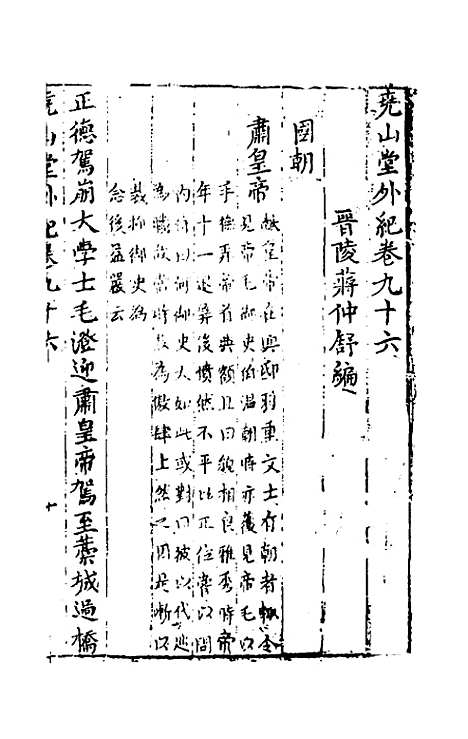 堯山堂外紀卷九十六
晉陵蔣仲舒編
國朝
肅皇帝
獻皇帝在興邸羽東文士有朝者輒令
見帝毛御史伯溫朝時亦獲見帝毛以
手捧弄帝有典額且曰貌相良雅秀時帝
年十一送算後憤然不平以正位常以問
内侍曰何御史大如此或對曰彼以代巡
為職故當時為傲肆上然之因是漸以
裁抑御史為
念後益嚴云
正德駕崩大學士毛澄迎肅皇帝駕至藁城過橋
堯山堂外紀卷九十六
十